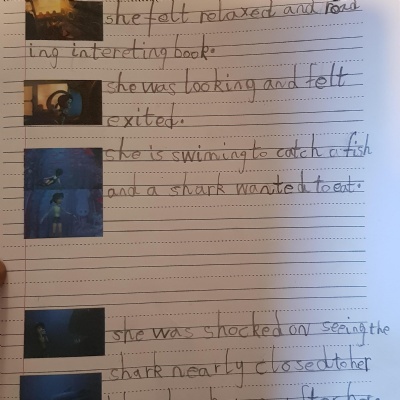 she felt relaxed and road
ing intereting book.
she was looking and felt
exited.
she is swiming to catch a fish
and a shark wanted to eat.
she was shocked on seeing the
shark nearly closed to her